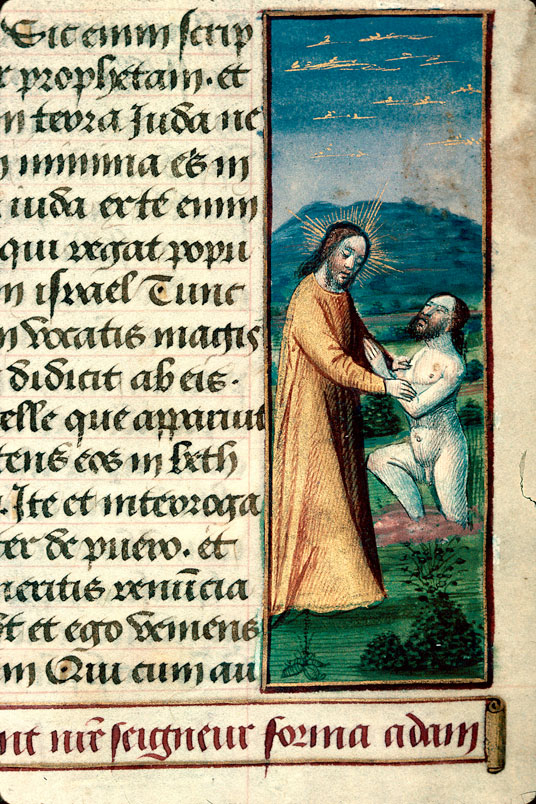 Sic enim scrip
r prophetam. et
n terra Juda ne
n minima es in
iuda exte enim
qui regat popu
m israel Tunc
m vocatis magis
didicit ab eis.
elle que apparuit
tens eos in beth
. Ite et interroga
ter de puero. et
neritis renūcia
t et ego veniens
m Qui cum au
nt nr̄e seigneur forma adam